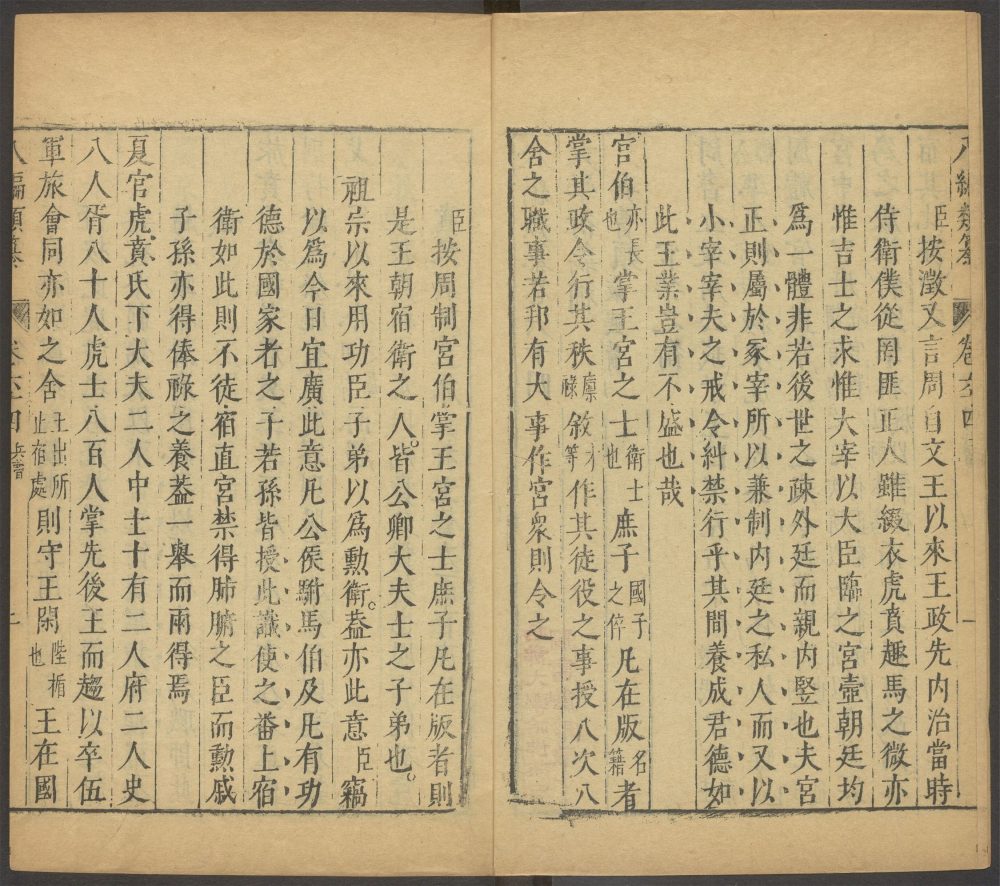 八編類纂 卷六四 一
臣按澂又言周自文王以來王政先内治當時
侍衛僕從罔匪正人雖綴衣虎賁趣馬之微亦
惟吉士之求惟大宰以大臣臨之宮壼朝廷均
爲一體非若後世之疎外廷而親内竪也夫宮
正則屬於冢宰所以兼制内廷之私人而又以
小宰宰夫之戒令糾禁行乎其間養成君德如
此王業豈有不盛也哉
宮伯亦長也掌王宮之士衛士也庶子國子之倅凡在版名籍者
掌其政令行其秩廪祿敘才等作其徒役之事授八次八
舍之職事若邦有大事作宮衆則令之
臣按周制宮伯掌王宮之士庶子凡在版者則
是王朝宿衛之人。皆公卿大夫士之子弟也。
祖宗以來用功臣子弟以爲勳衛。葢亦此意臣竊
以爲今日宜廣此意凡公侯駙馬伯及凡有功
德於國家者之子若孫皆授此職使之番上宿
衛如此則不徒宿直宮禁得肺腑之臣而勳戚
子孫亦得俸祿之養葢一舉而兩得焉
夏官虎賁氏下大夫二人中士十有二人府二人史
八人胥八十人虎士八百人掌先後王而趨以卒伍
軍旅會同亦如之舍王出所止宿處則守王閑陛楯也王在國
八編類纂 卷六四 兵曹 二